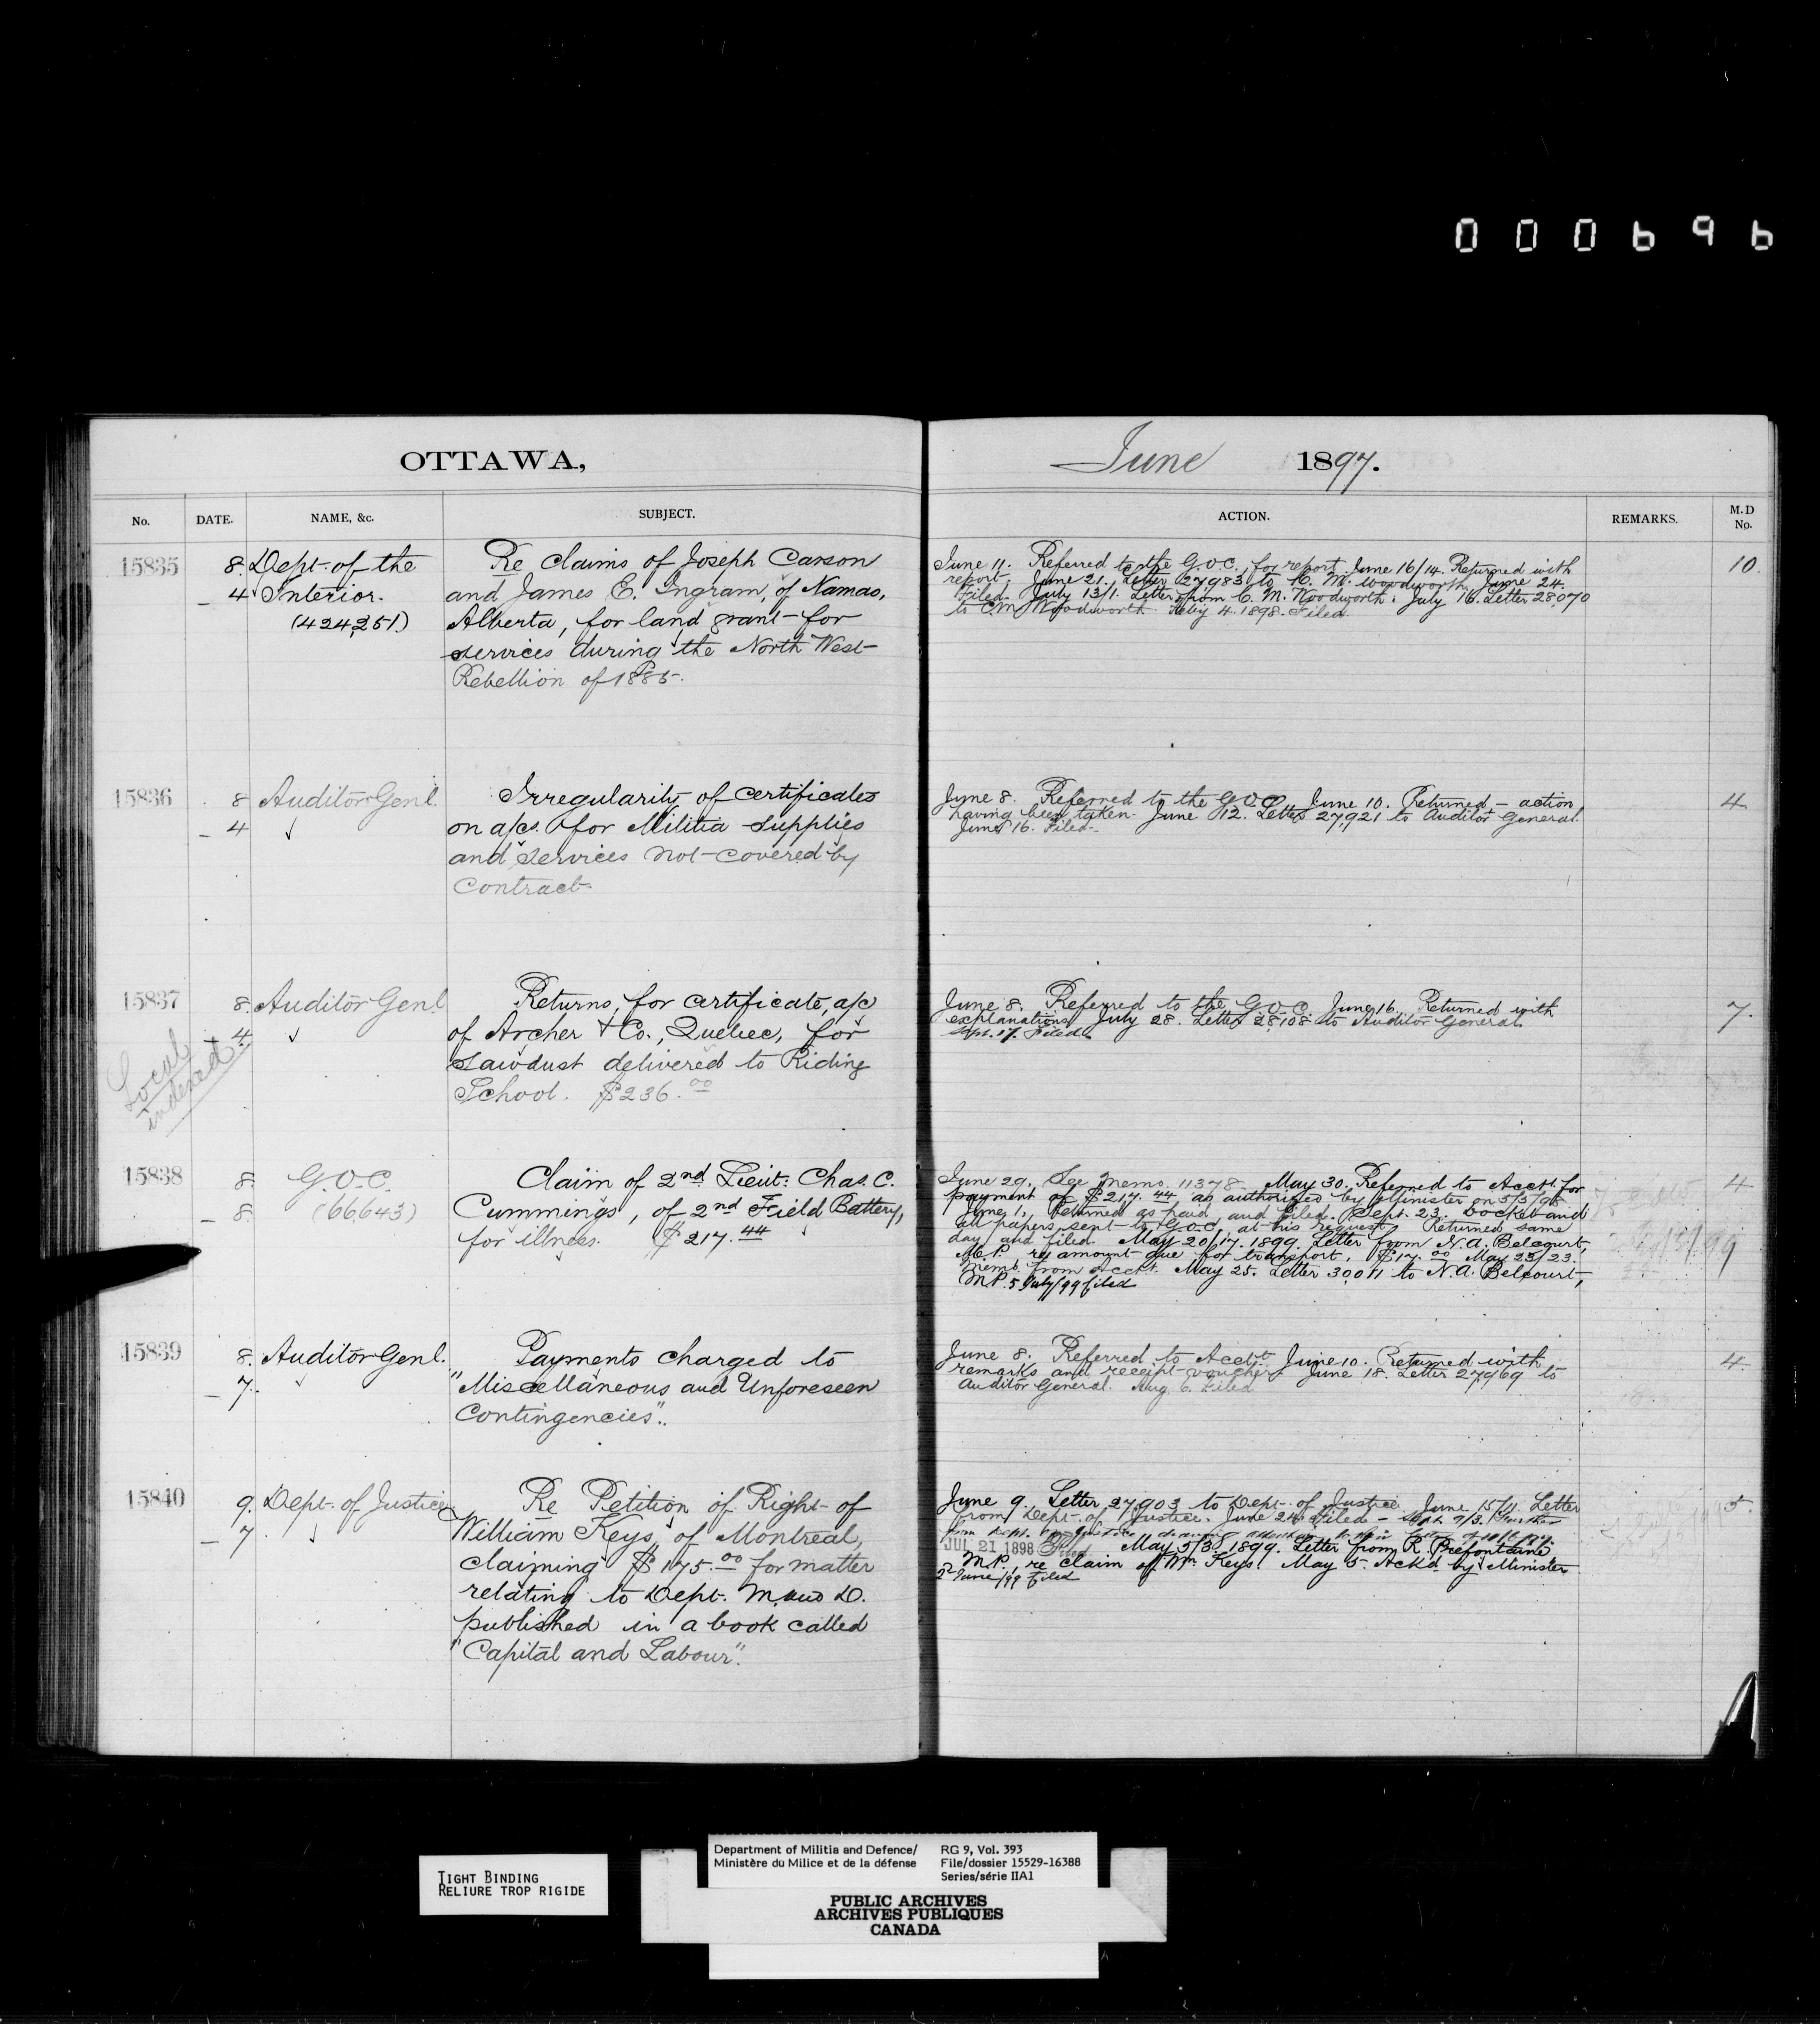 000696
OTTAWA,
June 1897.
No. DATE. NAME, &c. SUBJECT. ACTION. REMARKS. M.D No.
15835
8. Dept. of the
4 Interior.
(424251)
Re Claims of Joseph Carson
and James E. Ingram, of Namao,
Alberta, for land grant for
services during the North West
Rebellion of 1885.
June 11. Referred to the G.O.C. for report. June 16/14. Returned with
report. June 21. Letter 27983 to C. M. Woodworth. June 24.
Filed. July 13/1. Letter from C. M. Woodworth. July 16. Letter 28070
to C.M. Woodworth. Feby 4. 1898. Filed.
10.
15836
8 Auditor Genl.
4
Irregularity of certificates
on a/cs. for Militia supplies
and services not covered by
contract.
June 8. Referred to the G.O.C. June 10. Returned - action
having been taken. June 12. Letter 27921 to Auditor General.
June 16. Filed.
4
15837
8. Auditor Genl.
4.
Local
indexed
Returns, for certificate, a/c
of Archer & Co., Quebec, for
sawdust delivered to Riding
School. $236.00
June 8. Referred to the G.O.C. June 16. Returned with
explanations. July 28. Letter 28108 to Auditor General.
Sept. 17. Filed.
7.
15838
8. G.O.C.
8. (66643)
Claim of 2nd Lieut: Chas. C.
Cummings, of 2nd Field Battery,
for illness. $217.44
June 29. See Memo. 11378. May 30. Referred to Acct. for
payment of $217.44 as authorized by Minister on 5/5/98.
June 1. Returned as paid and filed. Sept. 23. Docket and
all papers sent to G.O.C. at his request. Returned same
day and filed. May 20/17. 1899. Letter from N.A. Belcourt,
M.P. re amount due for transport, $17.00 May 23/23.
Memo. from Acct. May 25. Letter 30,011 to N.A. Belcourt,
M.P. 5 July/99 filed
4
15839
8. Auditor Genl.
7.
Payments charged to
"Miscellaneous and Unforeseen
Contingencies".
June 8. Referred to Acct. June 10. Returned with
remarks and receipt voucher. June 18. Letter 27969 to
Auditor General. Aug. 6. Filed
4.
15840
9. Dept. of Justice
7.
Re Petition of Right of
William Keys, of Montreal,
claiming $175.00 for matter
relating to Dept. M. and D.
published in a book called
"Capital and Labour".
June 9. Letter 27903 to Dept. of Justice. June 15/11. Letter
from Dept. of Justice. June 24. Filed - Sept. 7/3. Further
from Dept. of Justice drawing attention to their letter of
JUL 21 1898 Filed May 5/3. 1899. Letter from R. Prefontaine
M.P., re claim of Mr. Keys. May 5. Ack'd by Minister
2 June/99 Filed
5.
TIGHT BINDING
RELIURE TROP RIGIDE
Department of Militia and Defence/
Ministère du Milice et de la défense
RG 9, Vol. 393
File/dossier 15529-16388
Series/série IIA1
PUBLIC ARCHIVES
ARCHIVES PUBLIQUES
CANADA